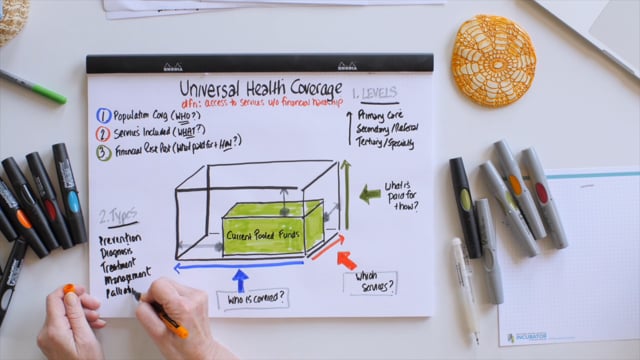 RHODIA
RHODIA
Universal Health Coverage
dfn: access to services w/o financial hardship
1 Population Covg (WHO?)
2 Services Included (WHAT?)
3 Financial Risk Prot (What paid for + HOW?)
1. LEVELS
Primary Care
Secondary/Referral
Tertiary/Specialty
What is
paid for
+ how?
Current Pooled Funds
2. Types
Prevention
Diagnosis
Treatment
Management
Palliat
Who is covered?
Which
services?
INCUBATOR